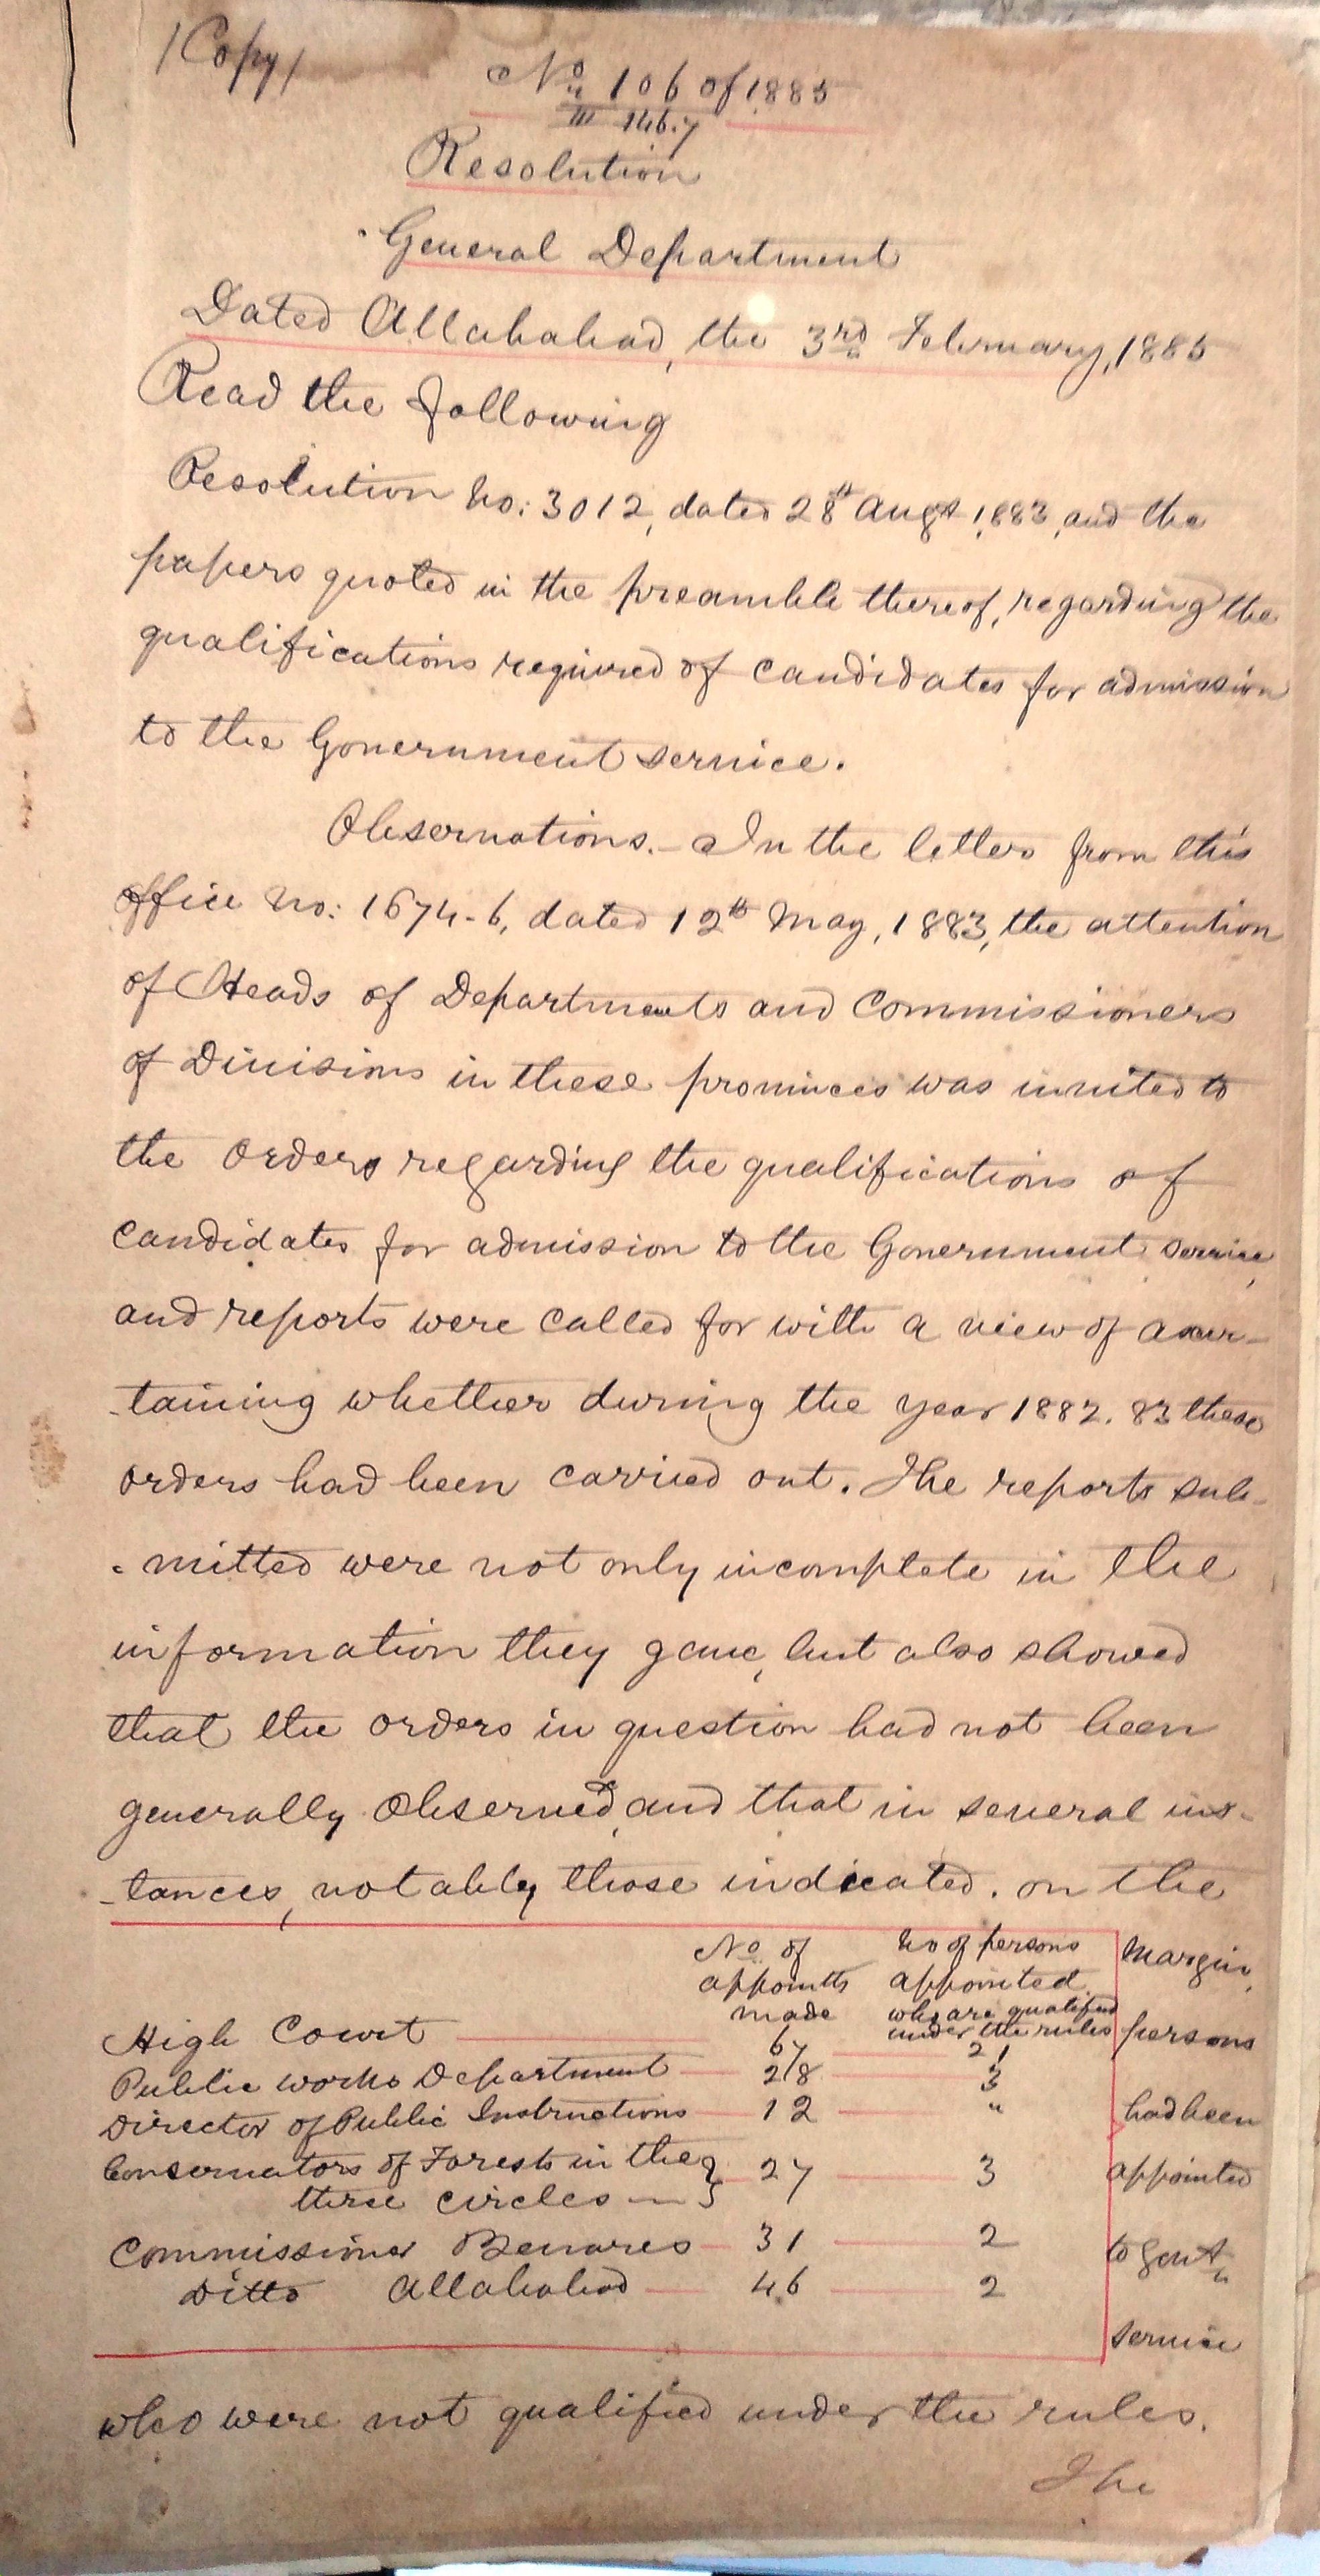 /Copy/
No 106 of 1885
III 146.7
Resolution
General Department
Dated Allahabad, the 3rd February, 1885
Read the following
Resolution No: 3012, dated 28th Augt 1883, and the
papers quoted in the preamble thereof, regarding the
qualifications required of candidates for admission
to the Government service.
Observations. - In the letter from this
office No: 1674-6, dated 12th May, 1883, the attention
of Heads of Departments and Commissioners
of Divisions in these provinces was invited to
the orders regarding the qualifications of
candidates for admission to the Government service,
and reports were called for with a view of ascer-
-taining whether during the year 1882. 83 these
orders had been carried out. The reports sub-
-mitted were not only incomplete in the
information they gave, but also showed
that the orders in question had not been
generally observed, and that in several ins-
-tances, notably those indicated. on the
No of appointts made No of persons appointed who are qualified under the rules margin,
High Court 67 21 persons
Public works Department 28 3
Director of Public Instructions 12 " had been
Conservators of Forests in the 27 3 appointed
three circles
Commissioner Benares 31 2 to Govt
Ditto Allahabad 46 2
service
who were not qualified under the rules.
The